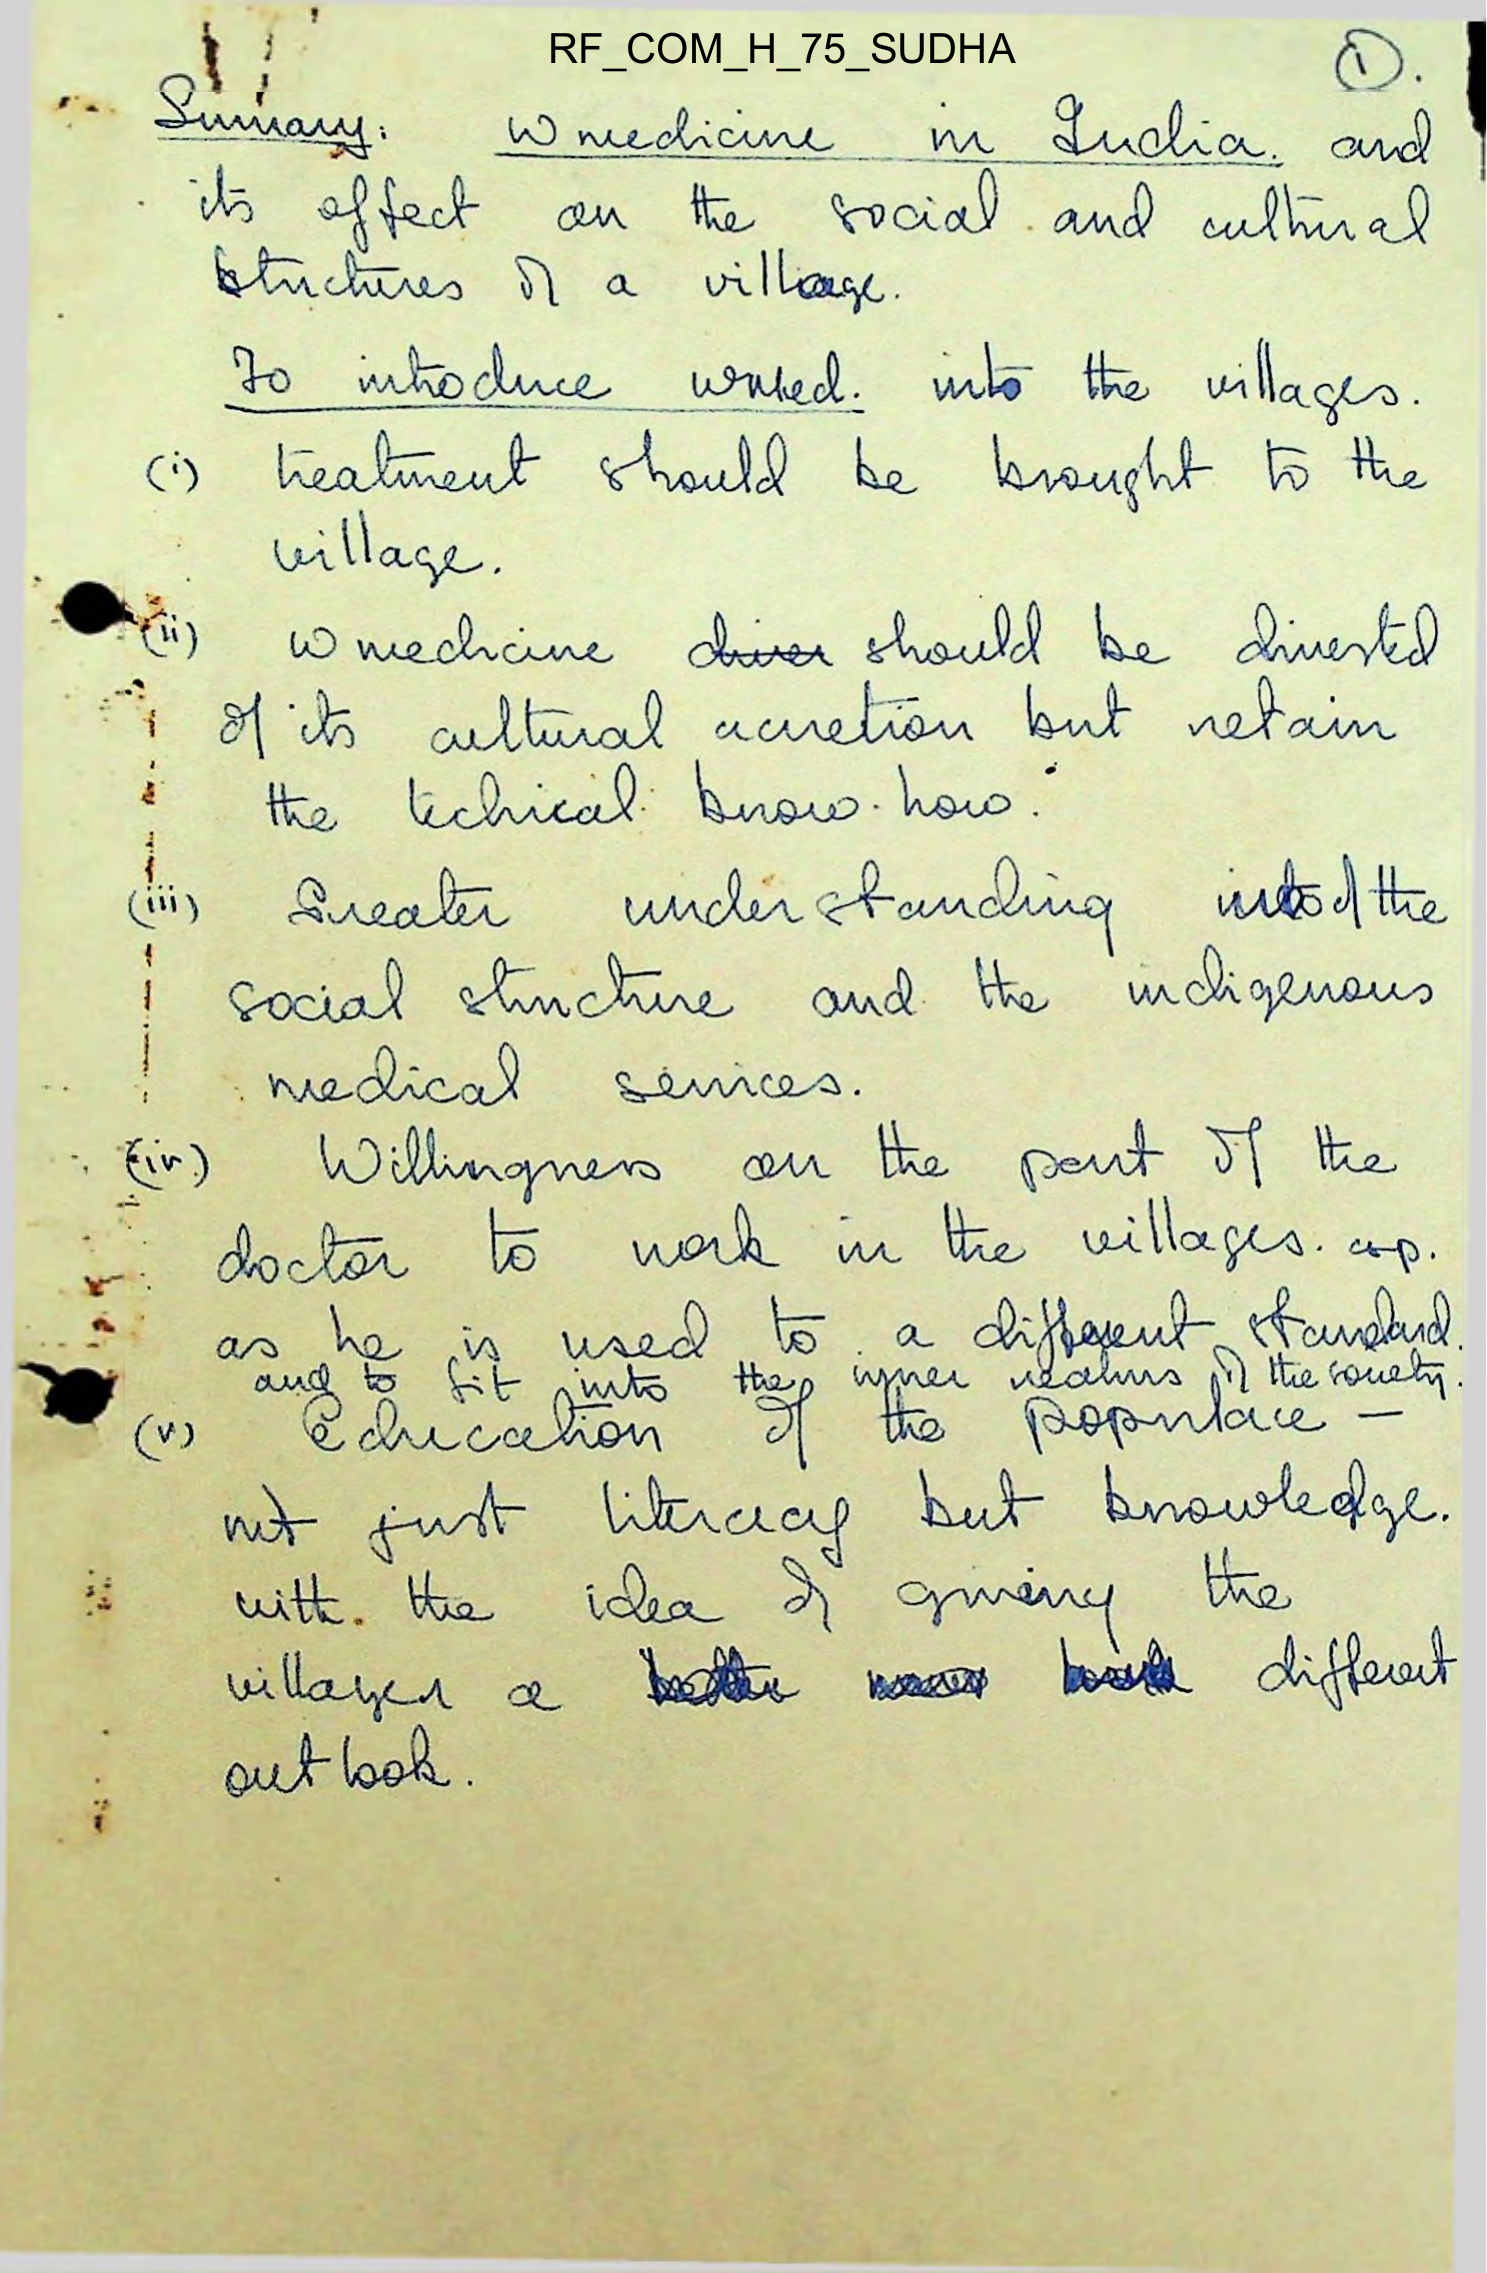 RF_COM_H_75_SUDHA
1.
Summary: W medicine in India. and
its effect on the social and cultural
structures of a village.
To introduce wmed. into the villages.
(i) treatment should be brought to the
village.
(ii) W medicine diver should be divested
of its cultural accretion but retain
the techical know-how.
(iii) Greater understanding into of the
social structure and the indigenous
medical services.
(iv.) Willingness on the part of the
doctor to work in the villages. esp.
as he is used to a different standard.
and to fit into the inner realms of the society.
(v) Education of the populace —
not just literacy but knowledge.
with the idea of giving the
villager a different
outlook.